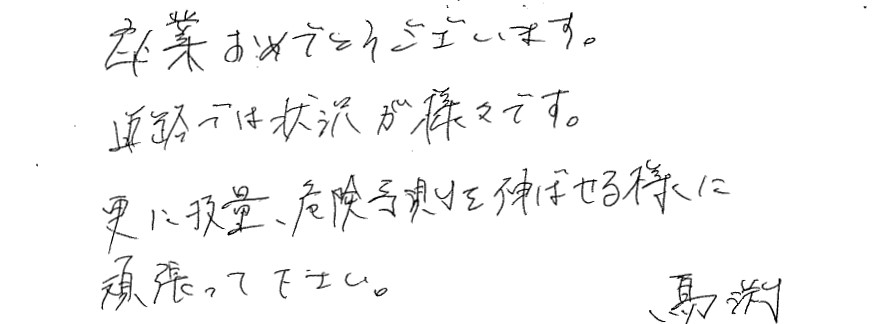 卒業おめでとうございます。
道路では状況が様々です。
更に技量、危険予測を伸ばせる様に
頑張って下さい。
馬渕